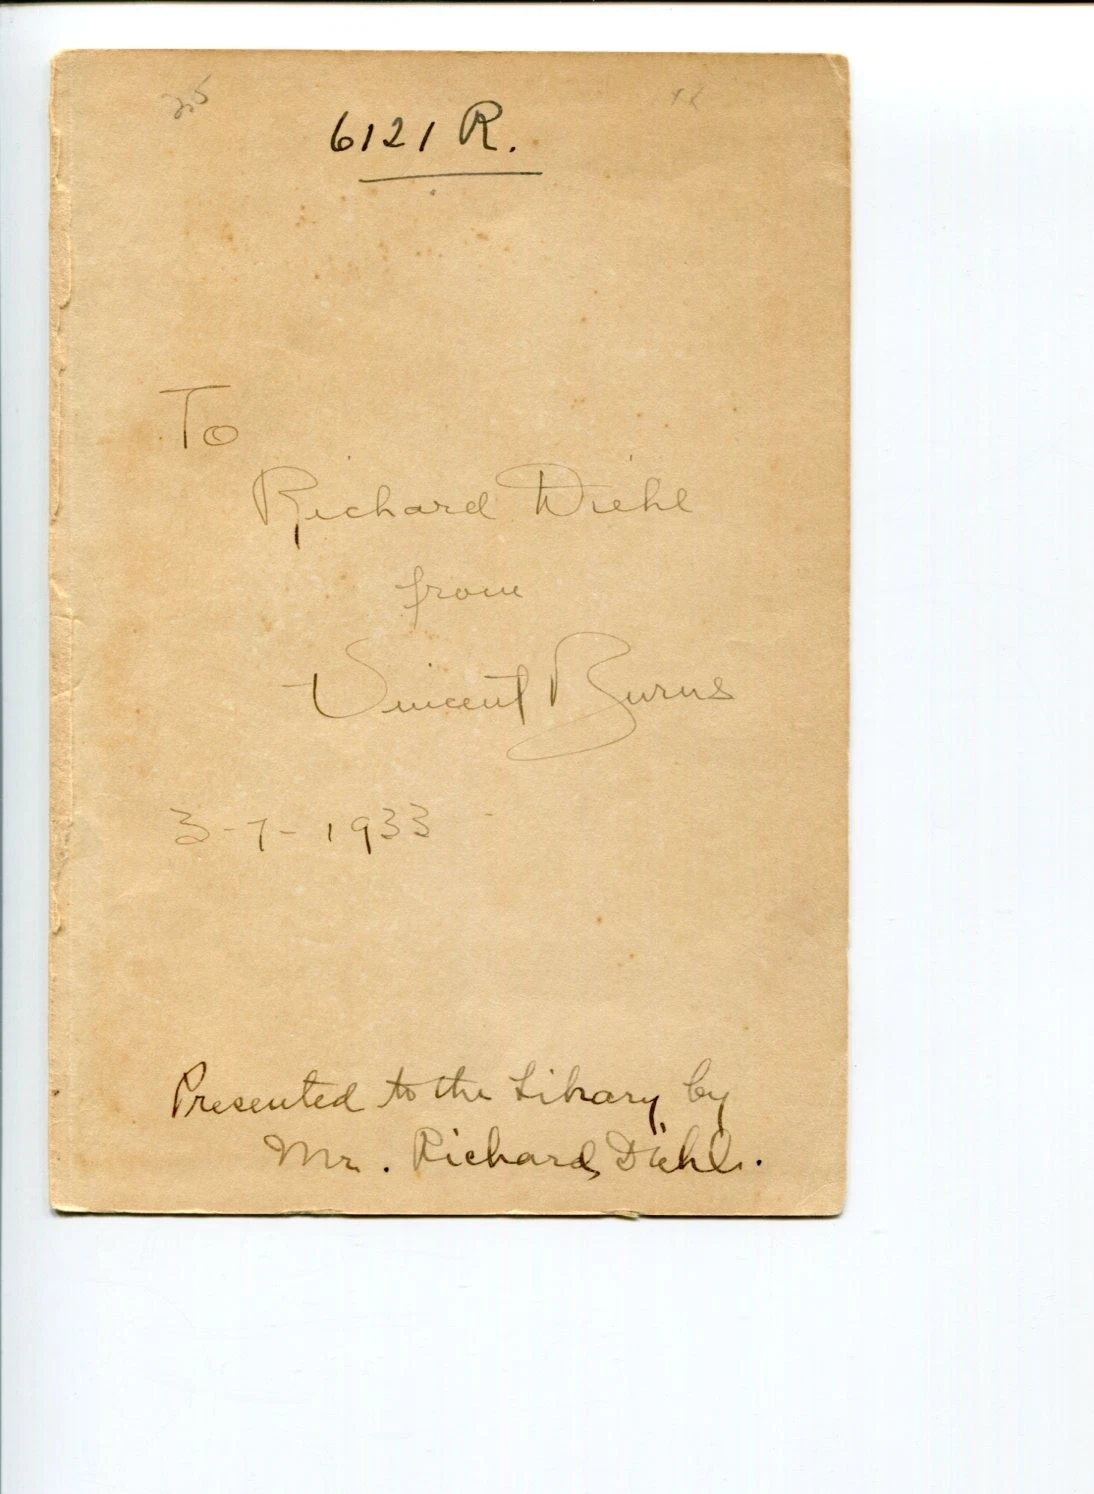 25
6121 R.
To
Richard Diehl
from
Vincent Burns
3-7-1933
Presented to the Library by
Mr. Richard Diehl.